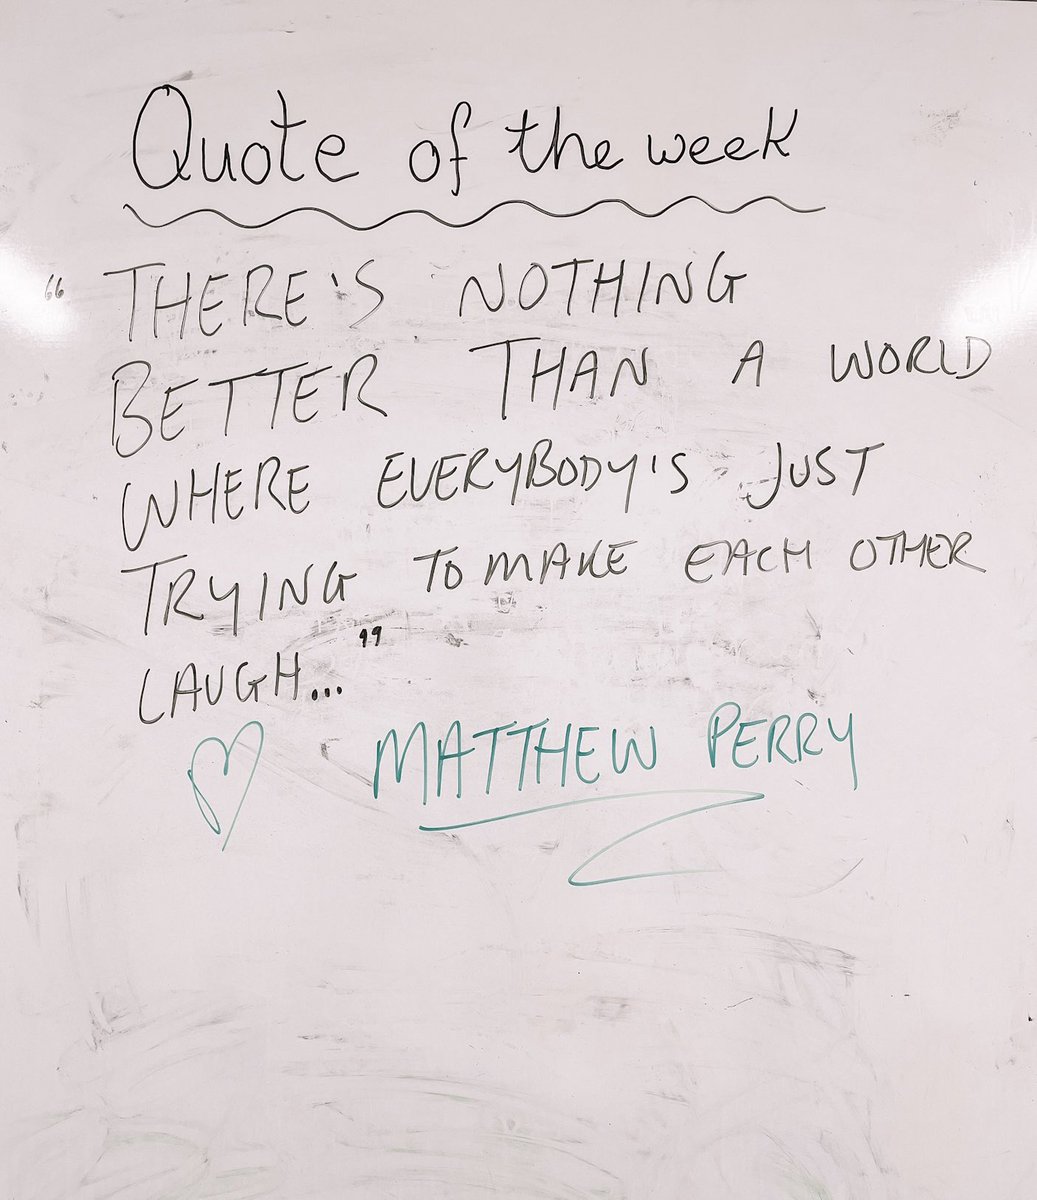 Quote of the week
“THERE'S NOTHING
BETTER THAN A WORLD
WHERE EVERYBODY'S JUST
TRYING TO MAKE EACH OTHER
LAUGH...”
MATTHEW PERRY